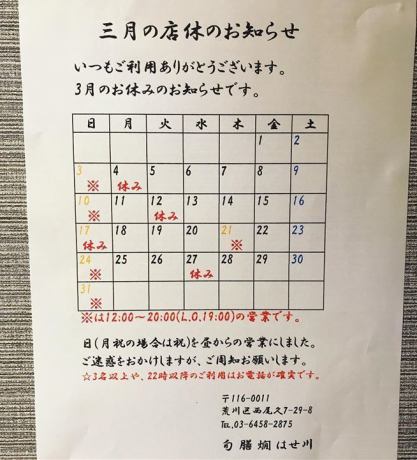 三月の店休のお知らせ
いつもご利用ありがとうございます。
3月のお休みのお知らせです。
日 月 火 水 木 金 土
1 2
3 4 5 6 7 8 9
※ 休み
10 11 12 13 14 15 16
※ 休み
17 18 19 20 21 22 23
休み ※
24 25 26 27 28 29 30
※ 休み
31
※
※は12:00~20:00(L.O.19:00)の営業です。
日(月祝の場合は祝)を昼からの営業にしました。
ご迷惑をおかけしますが、ご周知お願いします。
☆3名以上や、22時以降のご利用はお電話が確実です。
〒116-0011
荒川区西尾久7-29-8
TEL,03-6458-2875
旬膳燗 はせ川